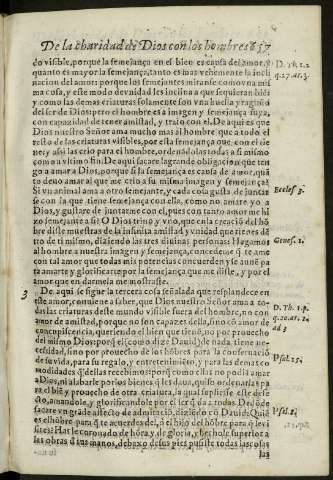 De la charidad de Dios con los hombres 657
do visible, porque la semejança en el bien es causa del amor, y
quanto es mayor la semejança, tanto es mas vehemente la incli
nacion del amor: porque los semejantes miranse como vna mis
ma cosa, y este modo de vnidad les inclina a que se quieran biẽ:
y como las demas criaturas solamente son vna huella y rasguño
del ser de Dios: pero el hombre es a imagen y semejança suya,
con capacidad de tener amistad, y trato con el. De aqui es que
Dios nuestro Señor ama mucho mas al hombre que a todo el
resto de las criaturas visibles, por ella semejança que con el tie
ne: y assi las crio para el hombre, ordenandolas todas a si mismo
como a vltimo fin. De aqui sacare la grande obligacion que ten
go a amar a Dios, porque si la semejança es causa de amor, quã
to deuo amar al que me crio a su misma imagen y semejança?
Si vn animal ama a otro semejante, y cada cosa gusta de juntar
se con la que tiene semejança con ella, como no amare yo a
Dios, y gustare de juntarme con el, pues con tanto amor me hi
zo semejante a si? O Dios trino y vno, que en la creacion del hõ
bre diste muestras de la infinita amistad y vnidad que tienes dẽ
tro de ti mismo, diziendo las tres diuinas personas: Hagamos
al hombre a nuestra imagen y semejança, concedeme q̃ te ame
con tal amor que todas mis potencias concuerden y se aunẽ pa
ta amarte y glorificarte por la semejança que me diste, y por el
amor que en darmela me mostraste.
3 De aqui se sigue la tercera cosa señalada que resplandece en
este amor, conuiene a saber, que Dios nuestro Señor ama a to-
das las criaturas deste mundo visible fuera del hombre, no con
amor de amistad, porque no son capaces della, sino cõ amor de
concupiscencia, queriendo el bien que tienẽ, no por prouecho
del mismo Dios: porq̃ el (como dize Dauid) de nada tiene ne-
cessidad, sino por prouecho de los hõbres para la conseruació
de su vida, para su regalo, y entretenimiẽto, y para las demas co
modidades q̃ dellas recebimos: porq̃ como ellas no podiã amar
a Dios, ni alabarle por los bienes q̃ les daua, quiso ordenarlas pa
ra el biẽ y prouecho de otra criatura, la qual supliesse este defe
cto, amandole, y glorificandole por el ser q̃ da a todas. De dõde
sacare vn grãde afecto de admiració, diziẽdo cõ Dauid: Quiẽ
es el hõbre para q̃ te acuerdes del, ó el hijo del hõbre para q̃ le vi
sites? Has le coronado de hõra, y de gloria, y hechole superior a
las obras d̃ tus manos, debaxo de sus pies pusiste todas las cosas
las
D. Th. 1.2
q. 27. ar. 3.
Eccles. 3.
Genes. 1.
D. Th. 1. p.
q. 20. ar. 2.
ad 3
Psal. 15.
Psal. 8.